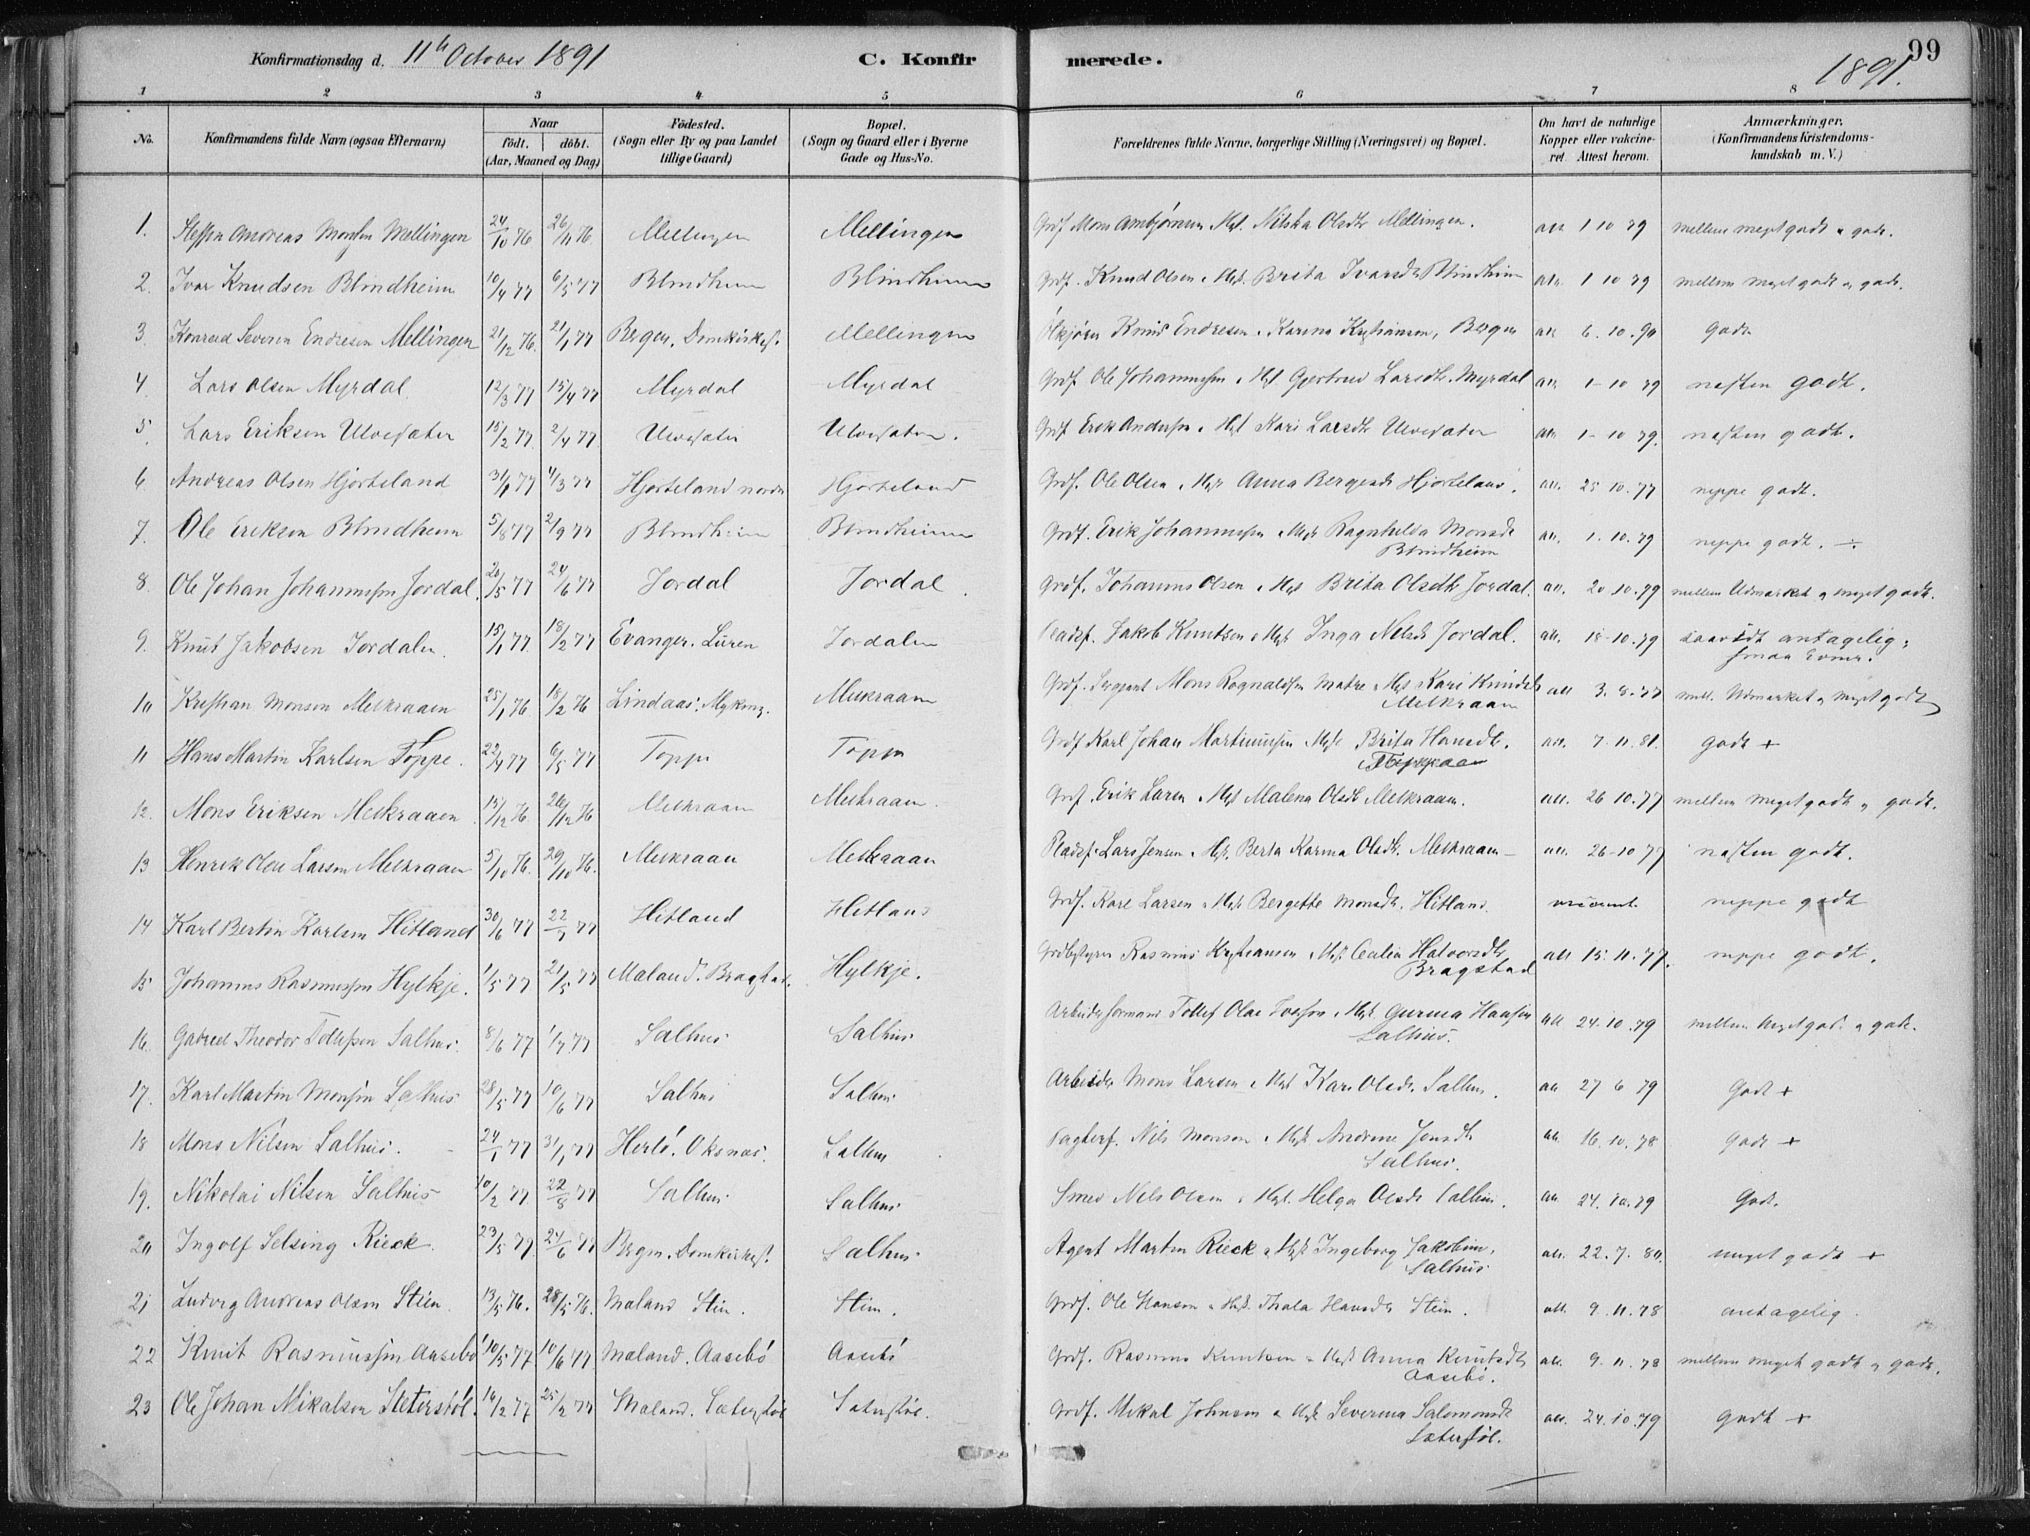 Konfirmationsdag d. 11te October 1891 C. Konfirmerede. 1891. 99
1 2 3 4 5 6 7 8
No. Konfirmandens fulde Navn (ogsaa Efternavn) Naar födt. döbt. (Aar, Maaned og Dag) Födested. (Sogn eller By og paa Landet tillige Gaard) Bopæl. (Sogn og Gaard eller i Byerne Gade og Hus-No. Forældrenes fulde Navne, borgerlige Stilling (Næringsvei) og Bopæl. Om havt de naturlige Kopper eller vakcineret. Attest herom. Anmærkninger. (Konfirmandens Kristendomskundskab m. V.)
1. Andreas Monsen Mellingen 24/10 76 26/11 76 Mellingen Mellingen Grdf. Mons Ambjørnsen Nilska Olsdtr Mellingen. att 1 10 79 mellem meget godt og godt.
2. Ivar Knudsen Blindheim 10/4 77 6/5 77 Blindheim Blindheim Grdf. Knud Olsen Brita Ivarsdtr Blindheim att. 1 10 79 mellem meget godt og godt.
3. Konrad Severin Endresen Mellingen 21/12 76. 21/1 77 Bergen, Domkirkes. Mellingen Knud Endresen Karina Bergen att 6. 10. 90 Godt
4 Lars Olsen Myrdal. 12/3 77 15/4 77 Myrdal Myrdal Grdf. Ole Johannessen Gjertrud Larsdtr. Myrdal att. 1-10 79 næsten godt.
5. Lars Eriksen Ulvesæter 15/2 77. 2/4 77 Ulvesæter Ulvesæter. Grdf. Erik Andersen Kari Larsdtr Ulvesæter att. 1-10 79. næsten godt.
6. Andreas Olsen Hjorteland 31/1 77 4/3 77 Hjorteland nordre Hjorteland Grdf. Ole Olsen Anna Hjorteland. att. 25 10. 77 neppe godt.
7. Ole Eriksen Blindheim 5/8 77 2/9 77 Blindheim Blindheim Grdf. Erik Johannessen Ragnhilda Monsdtr Blindheim att. 1. 10. 79 neppe godt. ÷
8. Ole Johan Johannessen Jordal. 20/5 77 24/6 77 Jordal Jordal Grdf. Johannes Olsen Brita Olsdtr Jordal. att. 20. 10. 79 mellem Udmærket og meget godt.
9. Knut Jakobsen Jordalen. 15/1 77. 18/2 77 Evanger. Jordalen Pladsf. Jakob Knutsen Inga Nilsdtr Jordal. att. 18-10. 79 saavidt antagelig, smaa Evner.
10 Kristian Monsen Melkraaen 25/1 76. 18/2 76 Lindaas. Myking. Melkraaen Grdf. Sergeant Mons Ragnaldsen Matre Kari Knudsdtr Melkraaen att 3. 8. 77 mell. Udmærket og meget godt
11 Hans Martin Karlsen Toppe. 22/4 77 6/5 77 Toppe Toppe Grdf. Karl Johan Martinussen Brita Hansdtr. att. 7. 11. 81. godt +
12. Mons Eriksen Melkraaen 15/12 76. 26/12 76 Melkraaen Melkraaen. Grdf. Erik Larsen Malena Olsdtr Melkraaen. att. 26 10. 77 mellem meget godt og godt.
13 Henrik Olai Larsen Melkraaen 5/10 76. 29/10 76. Melkraaen Melkraaen Pladsf. Lars Jensen Berta Karina Olsdtr. Melkraaen- att. 26-10 77 næsten godt.
14 Karl Bertin Karlsen Hitland 30/6 77 22/7 77 Hitland Hitland Grdf. Karl Larsen Bergette Monsdtr. Hitland. neppe godt
15 Johannes Rasmussen Hylkje. 1/5 77 21/5 77 Maland. Bragstad. Hylkje. Rasmus Cecilia Halvorsdtr Bragstad att 15. 11. 77. neppe godt.
16. Gabriel Theodor Tollefsen Salhus. 8/6 77 1/7 77 Salhus Salhus Arbeidsformand Tollef Olai Gurina Hansen Salhus. att 24. 10. 79 mellem meget godt og godt.
17. Karl Martin Monsen Salhus 28/5 77 10/6 77 Salhus Salhus Arbeider Mons Larsen Kari Olsdtr Salhus. att 27 6 79 Godt +
18 Mons Nilsen Salhus. 24/1 77 31/1 77 Herlö. Oksnæs. Salhus Nils Monsen Andrine Jensdtr Salhus. att. 16. 10. 78 Godt +
19. Nikolai Nilsen Salhus 10/2 77 22/8 77 Salhus Salhus Smed Nils Olsen Helga Olsdtr Salhus. att 24. 10. 79 Godt.
20 Ingolf Selsing Rieck. 23/5 77. 24/6 77 Bergen. Domkirkes. Salhus Agent Martin Rieck Ingeborg Salhus att. 22. 7. 80. meget godt +
21 Ludvig Andreas Olsen Stien. 13/5 76. 28/5 76. Maland Stien. Stien. Grdf. Ole Hansen Thala Hansdtr Stien. att. 9. 11. 78 antagelig.
22 Knut Rasmussen Aasebö 10/5 77 10/6 77 Maland. Aasebö Aasebö Grdf. Rasmus Knutsen Anna Knutsdtr Aasebö. att. 9. 11. 78 mellem meget godt og godt.
23 Ole Johan Mikalson Sæterstöl. 16/2 77 25/2 77 Maland. Sæterstöl Sæterstöl. Grdf. Mikal Johnsen Severina Salomonsdtr Sæterstöl. att. 24. 10. 79 Godt +